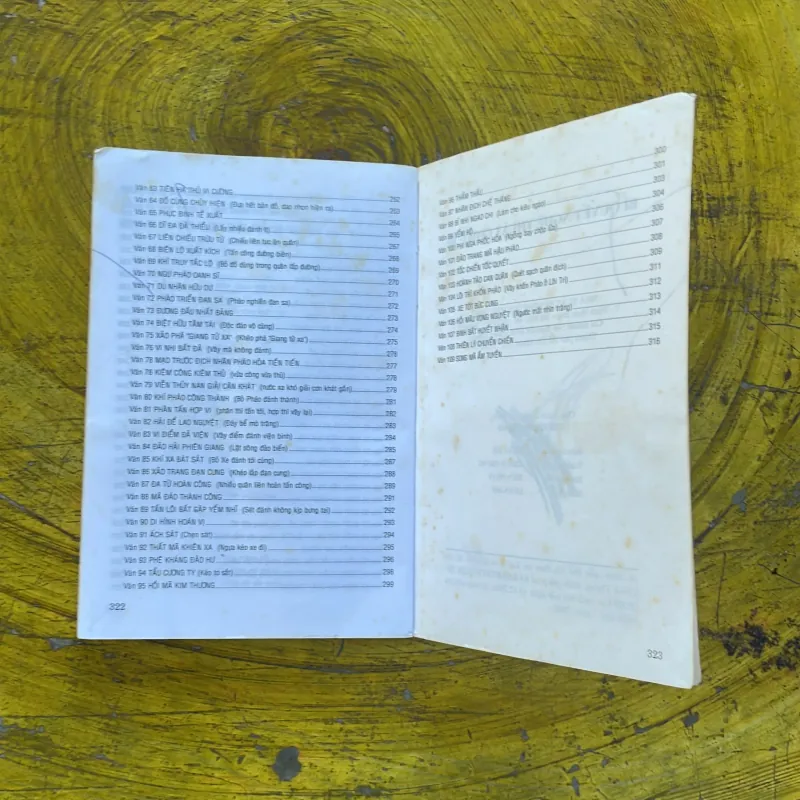 Ván 63 TIÊN HẠ THỦ VI CƯỜNG 262
Ván 64 ĐỒ CUNG CHỦY HIỆN (Đục hết bản đồ, dao nhọn hiện ra) 263
Ván 65 PHỤC BINH TỀ XUẤT 264
Ván 66 DĨ ĐA ĐẢ THIỂU (Lấy nhiều đánh ít)
Ván 67 LIÊN CHIẾU TRỪU TỬ (Chiếu liên tục ăn quân)
Ván 68 BIÊN LỘ XUẤT KÍCH (Tấn công đường biên)
Ván 69 KHÍ TRUY TẮC LỘ (Bỏ đồ dùng trong quân lấp đường) 269
Ván 70 NGƯ PHÁO OANH SĨ 270
Ván 71 DU NHẬN HỮU DƯ 271
Ván 72 PHÁO TRIỂN ĐAN SA (Pháo nghiền đan sa) 272
Ván 73 ĐƯƠNG ĐẦU NHẤT BẢNG 273
Ván 74 BIỆT HỮU TÂM TÀI (Độc đáo vô cùng) 274
Ván 75 XẢO PHÁ "GIANG TỬ XA" (Khéo phá "Giang tử xa") 275
Ván 76 VI NHI BẤT ĐẢ (Vây mà không đánh) 276
Ván 78 MẠO TRƯỚC ĐỊCH NHÂN PHÁO HỎA TIẾN TIẾN 277
Ván 78 KIÊM CÔNG KIÊM THỦ (vừa công vừa thủ) 278
Ván 79 VIỄN THỦY NAN GIẢI CẬN KHÁT (nước xa khó giải cơn khát gần) 279
Ván 80 KHÍ PHÁO CÔNG THÀNH (Bỏ Pháo đánh thành) 281
Ván 81 PHÂN TẤN HỢP VI (phân thì tấn tới, hợp thì vây lại) 282
Ván 82 HẢI ĐỂ LAO NGUYỆT (Đáy bể mò trăng) 283
Ván 83 VI ĐIỂM ĐẢ VIỆN (Vây điểm đánh viện binh) 284
Ván 84 ĐẢO HẢI PHIÊN GIANG (Lật sông đảo biển) 285
Ván 85 KHÍ XA BÁT SÁT (Bỏ Xe đánh tới cùng) 287
Ván 86 XẢO TRANG ĐẠN CUNG (Khéo lắp đạn cung) 288
Ván 87 ĐA TỬ HOÀN CÔNG (Nhiều quân liên hoàn tấn công) 289
Ván 88 MÃ ĐÁO THÀNH CÔNG 291
Ván 89 TẤN LÔI BẤT GẬP YỂM NHĨ (Sét đánh không kịp bưng tai) 292
Ván 90 DI HÌNH HOÁN VỊ 293
Ván 91 ÁCH SÁT (Chẹn sát) 294
Ván 92 THẤT MÃ KHIÊN XA (Ngựa kéo xe đi) 295
Ván 93 PHÊ KHÁNG ĐẢO HƯ 296
Ván 94 TẨU CƯƠNG TY (Kéo tơ sắt) 298
Ván 95 HỒI MÃ KIM THƯƠNG 299
322
Ván 96 THẨM THẤU 300
Ván 97 NHÂN ĐỊCH CHẾ THẮNG 301
303
Ván 99 YỂM HỘ 304
Ván 100 PHI NGA PHỐC HỎA 306
Ván 101 ĐÀO TRANG MÃ HẬU PHÁO 308
Ván 102 TỐC CHIẾN TỐC QUYẾT 309
Ván 103 HOÀNH TẢO CAN QUÂN (Quét sạch quân địch) 311
Ván 104 LÔI TRÌ KHỐN PHÁO (Vây khốn Pháo ở Lôi Trì) 312
Ván 105 XE TỐT BỨC CUNG 313
Ván 106 HỒ MÂU VỌNG NGUYỆT (Ngước mắt nhìn trăng) 314
Ván 107 BINH BẤT HUYẾT NHẬN 315
Ván 108 THIÊN LÝ CHUYỂN CHIẾN 316
Ván 109 SONG MÃ ẨM TUYỀN
323